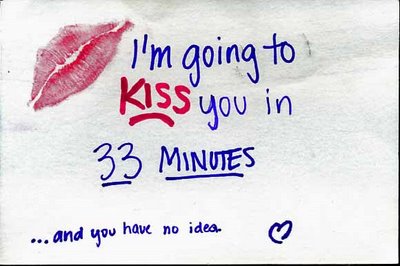 I'm going to
KISS you in
33 MINUTES
...and you have no idea.